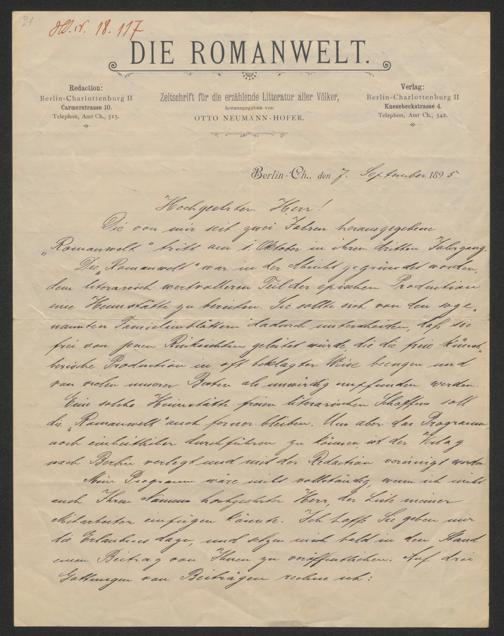 21
18.117
DIE ROMANWELT.
Redaction:
Berlin-Charlottenburg II
Carmerstrasse 10.
Telephon, Amt Ch., 515.
Zeitschrift für die erzählende Litteratur aller Völker,
herausgegeben von
OTTO NEUMANN-HOFER.
Verlag:
Berlin-Charlottenburg II
Knesebeckstrasse 4.
Telephon, Amt Ch., 542.
Berlin-Ch., den 7. September 1895
Hochgeehrter Herr!
Die von mir seit zwei Jahren herausgegebene
„Romanwelt“ tritt am 1. Oktober in ihren dritten Jahrgang.
Die „Romanwelt“ war in der Absicht gegründet worden,
dem literarisch wertvolleren Teil der epischen Production
eine Heimstätte zu bereiten. Sie sollte sich von den soge-
nannten Familienblättern dadurch unterscheiden, daß sie
frei von jenen Rücksichten geleitet würde, die die freie künst-
lerische Production in oft beklagter Weise beengen und
von vielen unserer Besten als unwürdig empfunden werden.
Eine solche Heimstätte freien literarischen Schaffens soll
die „Romanwelt“ auch ferner bleiben. Um aber das Programm
noch einheitlicher durchführen zu können ist der Verlag
nach Berlin verlegt und mit der Redaction vereinigt worden.
Mein Programm wäre nicht vollständig, wenn ich nicht
auch Ihren Namen hochgeehrter Herr, der Liste meiner
Mitarbeiter einfügen könnte. Ich hoffe Sie geben mir
die Erlaubnis dazu, und setzen mich bald in den Stand
einen Beitrag von Ihnen zu veröffentlichen. Auf drei
Gattungen von Beiträgen rechne ich: